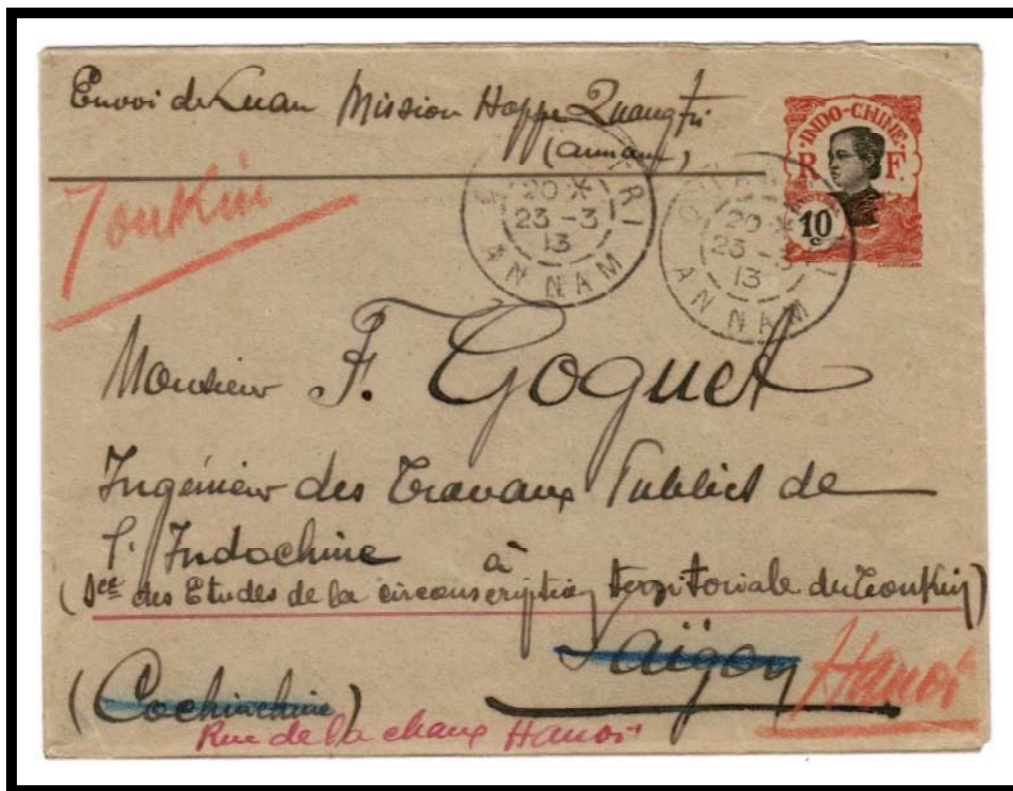 Envoi de Luan Mission Hoppe Quangtri
(Annam)
INDO-CHINE
R F
10 c
Tonkin
TRI
20 *
23 -3
13
ANNAM
20 *
23 -3
13
ANNAM
Monsieur F. Goguet
Ingénieur des Travaux Publics de
l'Indochine à
(Sce des Etudes de la circonscription territoriale du Tonkin)
Saïgon Hanoi
(Cochinchine)
Rue de la chaux Hanoi